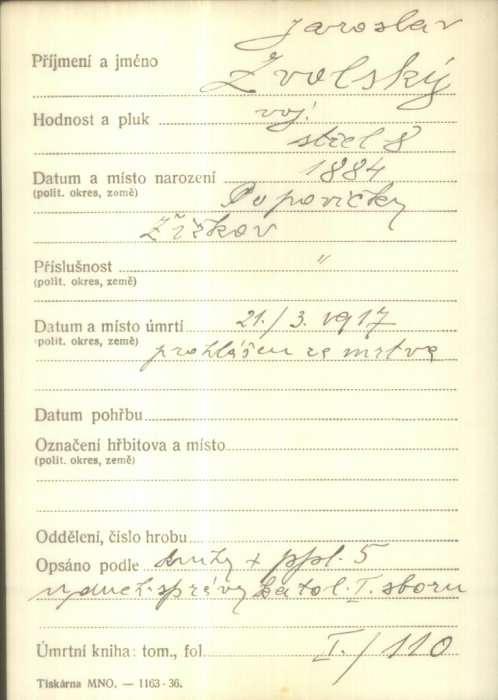 Jaroslav
Příjmení a jméno Zvolský
Hodnost a pluk voj.
střel 8
Datum a místo narození 1884
(polit. okres, země) Popovičky
Žižkov
Příslušnost "
(polit. okres, země)
Datum a místo úmrtí 21./3. 1917
(polit. okres, země) prohlášen za mrtva
Datum pohřbu
Označení hřbitova a místo
(polit. okres, země)
Oddělení, číslo hrobu
Opsáno podle knihy + ppl. 5
duch. správy katol. I. sboru
Úmrtní kniha: tom., fol. I./110
Tiskárna MNO. — 1163-36.